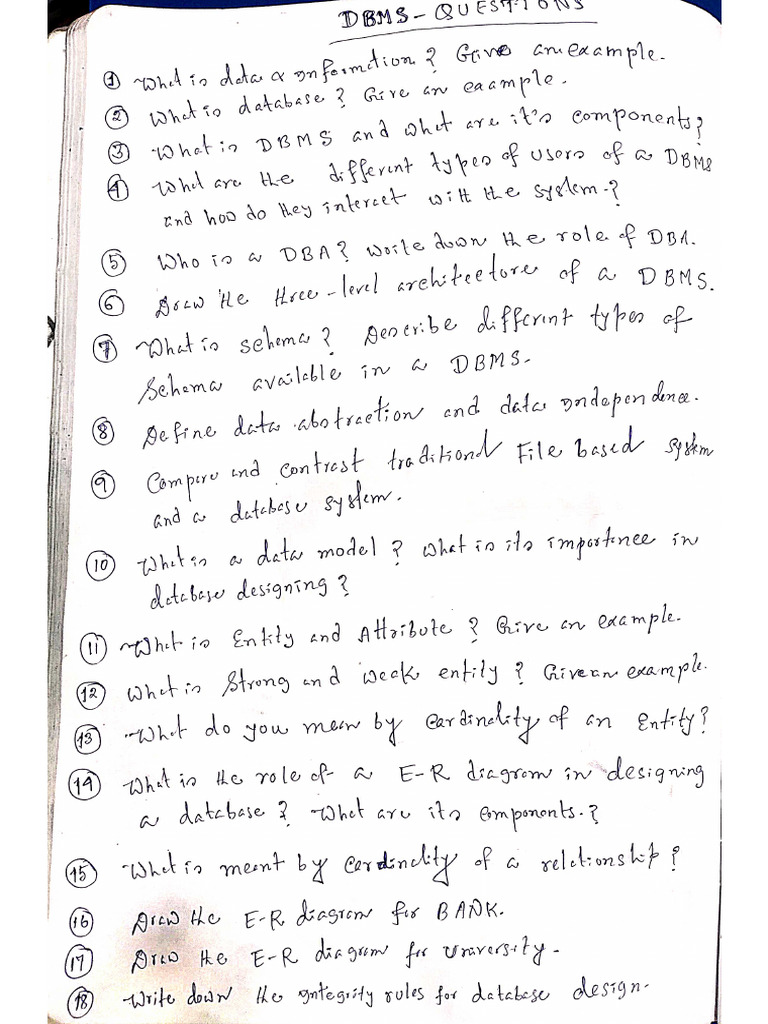 DBMS - QUESTIONS
① What is data & Information? Give an example.
② What is database? Give an example.
③ What is DBMS and what are it's components?
④ What are the different types of users of a DBMS
and how do they interact with the system?
⑤ Who is a DBA? Write down the role of DBA.
⑥ Draw the three-level architecture of a DBMS.
⑦ What is schema? Describe different types of
Schema available in a DBMS.
⑧ Define data abstraction and data Independence.
⑨ Compare and contrast traditional File based system
and a database system.
⑩ What is a data model? What is its importance in
database designing?
⑪ What is Entity and Attribute? Give an example.
⑫ What is Strong and weak entity? Give an example.
⑬ What do you mean by Cardinality of an Entity?
⑭ What is the role of a E-R diagram in designing
a database? What are its components.?
⑮ What is meant by Cardinality of a relationship?
⑯ Draw the E-R diagram for BANK.
⑰ Draw the E-R diagram for University.
⑱ Write down the Integrity rules for database design.